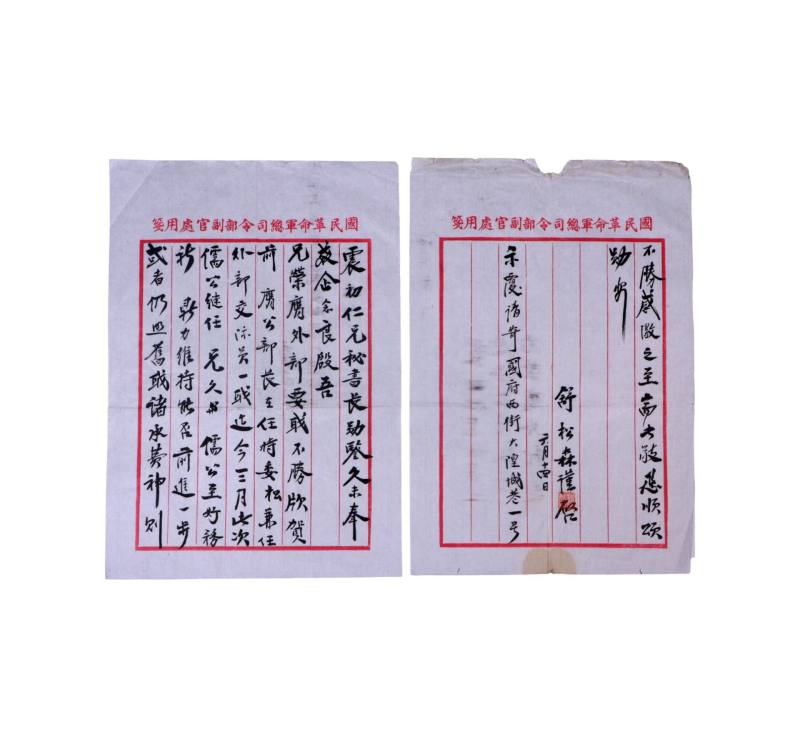 國民革命軍總司令部副官處用箋
震初仁兄秘書長勛鑒久未奉
教企念良殷吾
兄榮膺外部要職不勝欣賀
前膺公部長在任時委松兼任
外部交涉員一職迄今三月此次
儒公繼任 兄久與 儒公至好務
祈 鼎力維持能否前進一步
或者仍照舊職諸承費神則
國民革命軍總司令部副官處用箋
不勝感激之至耑此敬懇順頌
勛安
舒松森謹啓
六月十四日
示覆請寄國府西街大隍城巷一号